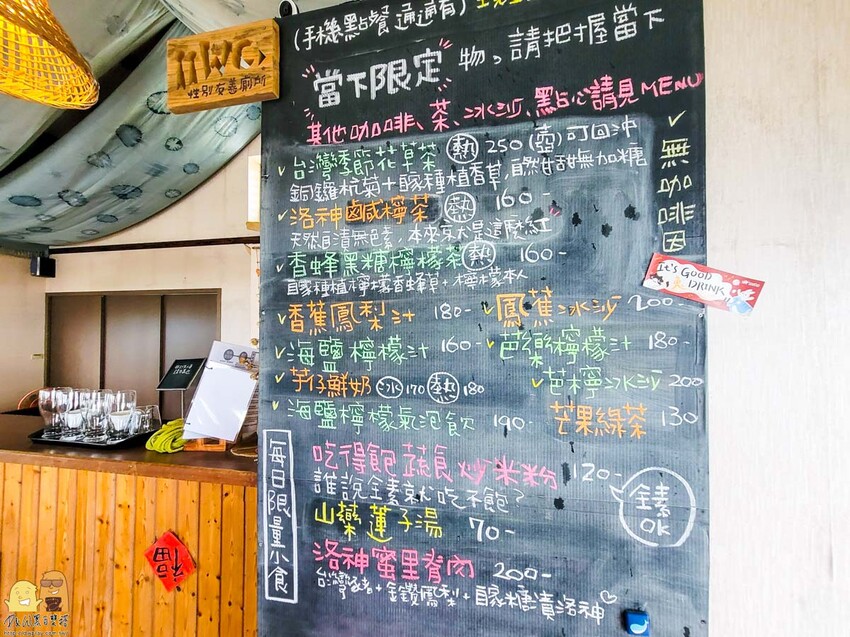 WC
性別友善廁所
(手機點餐通通有)
當下限定 物。請把握當下
其他咖啡、茶、冰沙、點心請見MENU
✓無咖啡因
✓台灣季節花草茶 熱 250(壺)可回沖
銅鑼杭菊+自家種植香草,自然甘甜無加糖
✓洛神鹹檸茶 熱 160-
天然自漬無色素,本來就是這麼紅
✓香蜂黑糖檸檬茶 熱 160-
自家種植檸檬香蜂草+檸檬本人
IT'S GOOD
DRINK
✓香蕉鳳梨汁 180- ✓鳳蕉冰沙 200-
✓海鹽檸檬汁 160- ✓芭樂檸檬汁 180-
✓芋仔鮮奶 冰170 熱180 ✓芭檸冰沙 200
✓海鹽檸檬氣泡飲 190- 芒果綠茶 130
每日限量小食
吃得飽蔬食炒米粉 120-
誰說全素就吃不飽?
全素OK
山藥蓮子湯 70-
洛神蜜里脊肉 200-
台灣豬+金鑽鳳梨+自家糖漬洛神♡
福